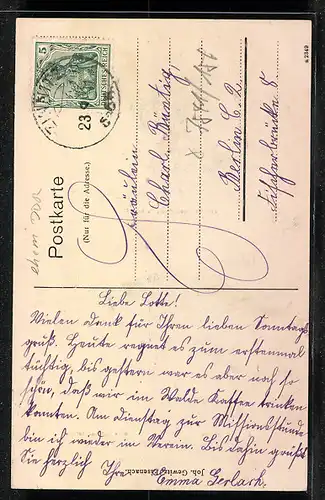 Postkarte
(Nur für die Adresse.)
Fräulein
Charl. Bunting,
Berlin C. 2
Fischerbrücke 8
5
DEUTSCHES REICH
23
a 2349
ehem DDR
Liebe Lotte!
Vielen Dank für Ihren lieben Sonntags
gruß. Heute regnet es zum erstenmal
tüchtig, bis gestern war es aber noch so
schön, daß wir im Walde Kaffee trinken
konnten. Am Dienstag zur Missionsstunde
bin ich wieder im Verein. Bis dahin grüßt
Sie herzlich Ihre Emma Gerlach.
Joh. Gewinner, Eisenach